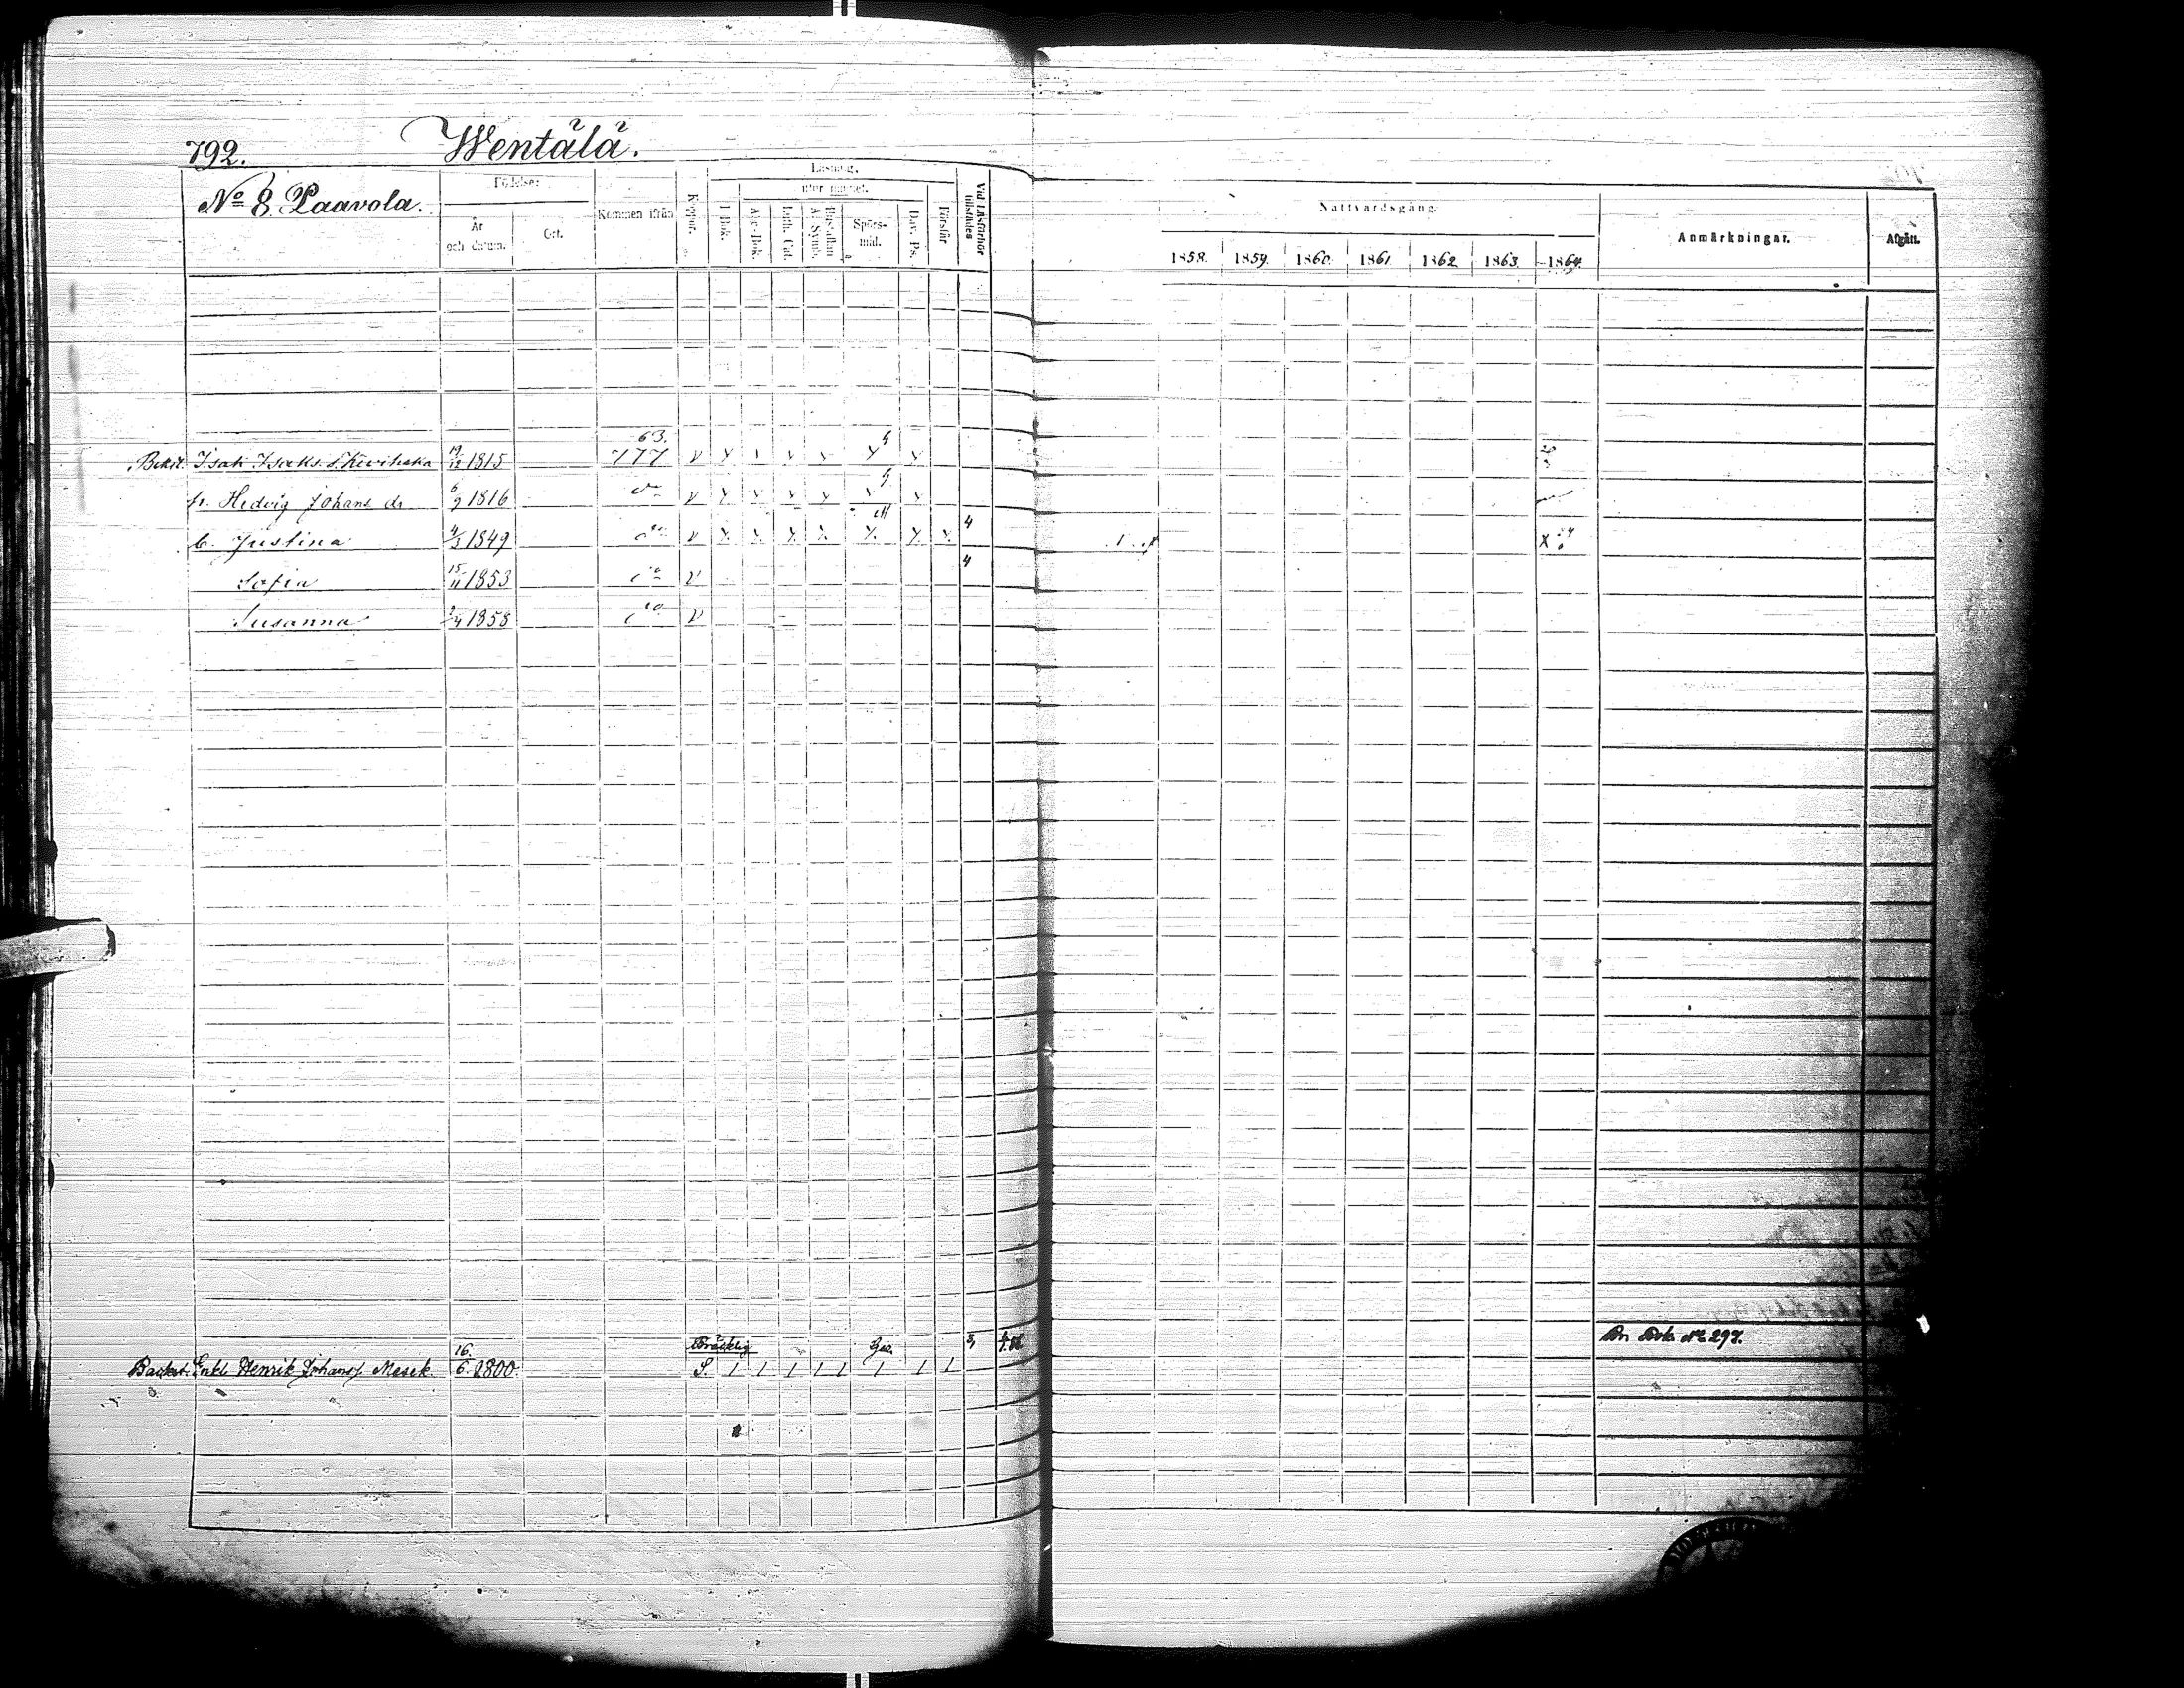 792. Wentälä.
No 8. Paavola.
Födelse:
År och datum.
Ort.
Kommen ifrån
Koppor.
Läsning,
I Bok.
utur minnet.
Abc-Bok.
Luth. Cat.
Hustaflan A. Symb.
Spörsmål.
Dav. Ps.
Förstår
Vid Läsförhör tillstädes
Nattvardsgång.
1858. 1859. 1860. 1861. 1862 1863. 1864.
Anmärkningar.
Afgått.
63.
Isak Isaks. s. 19/12 1815 777 v
h. Hedvig Johans dr 6/9 1816 do v
b. Justina 4/3 1849 do v 4
Sofia 15/11 1853 do v 4
Susanna 2/4 1858 do v
Bräcklig 3,
Backst. Enkl. Henrik Johans s. 16/6 1800. S. 1 1 1 1 1 1 1 1
No 297.